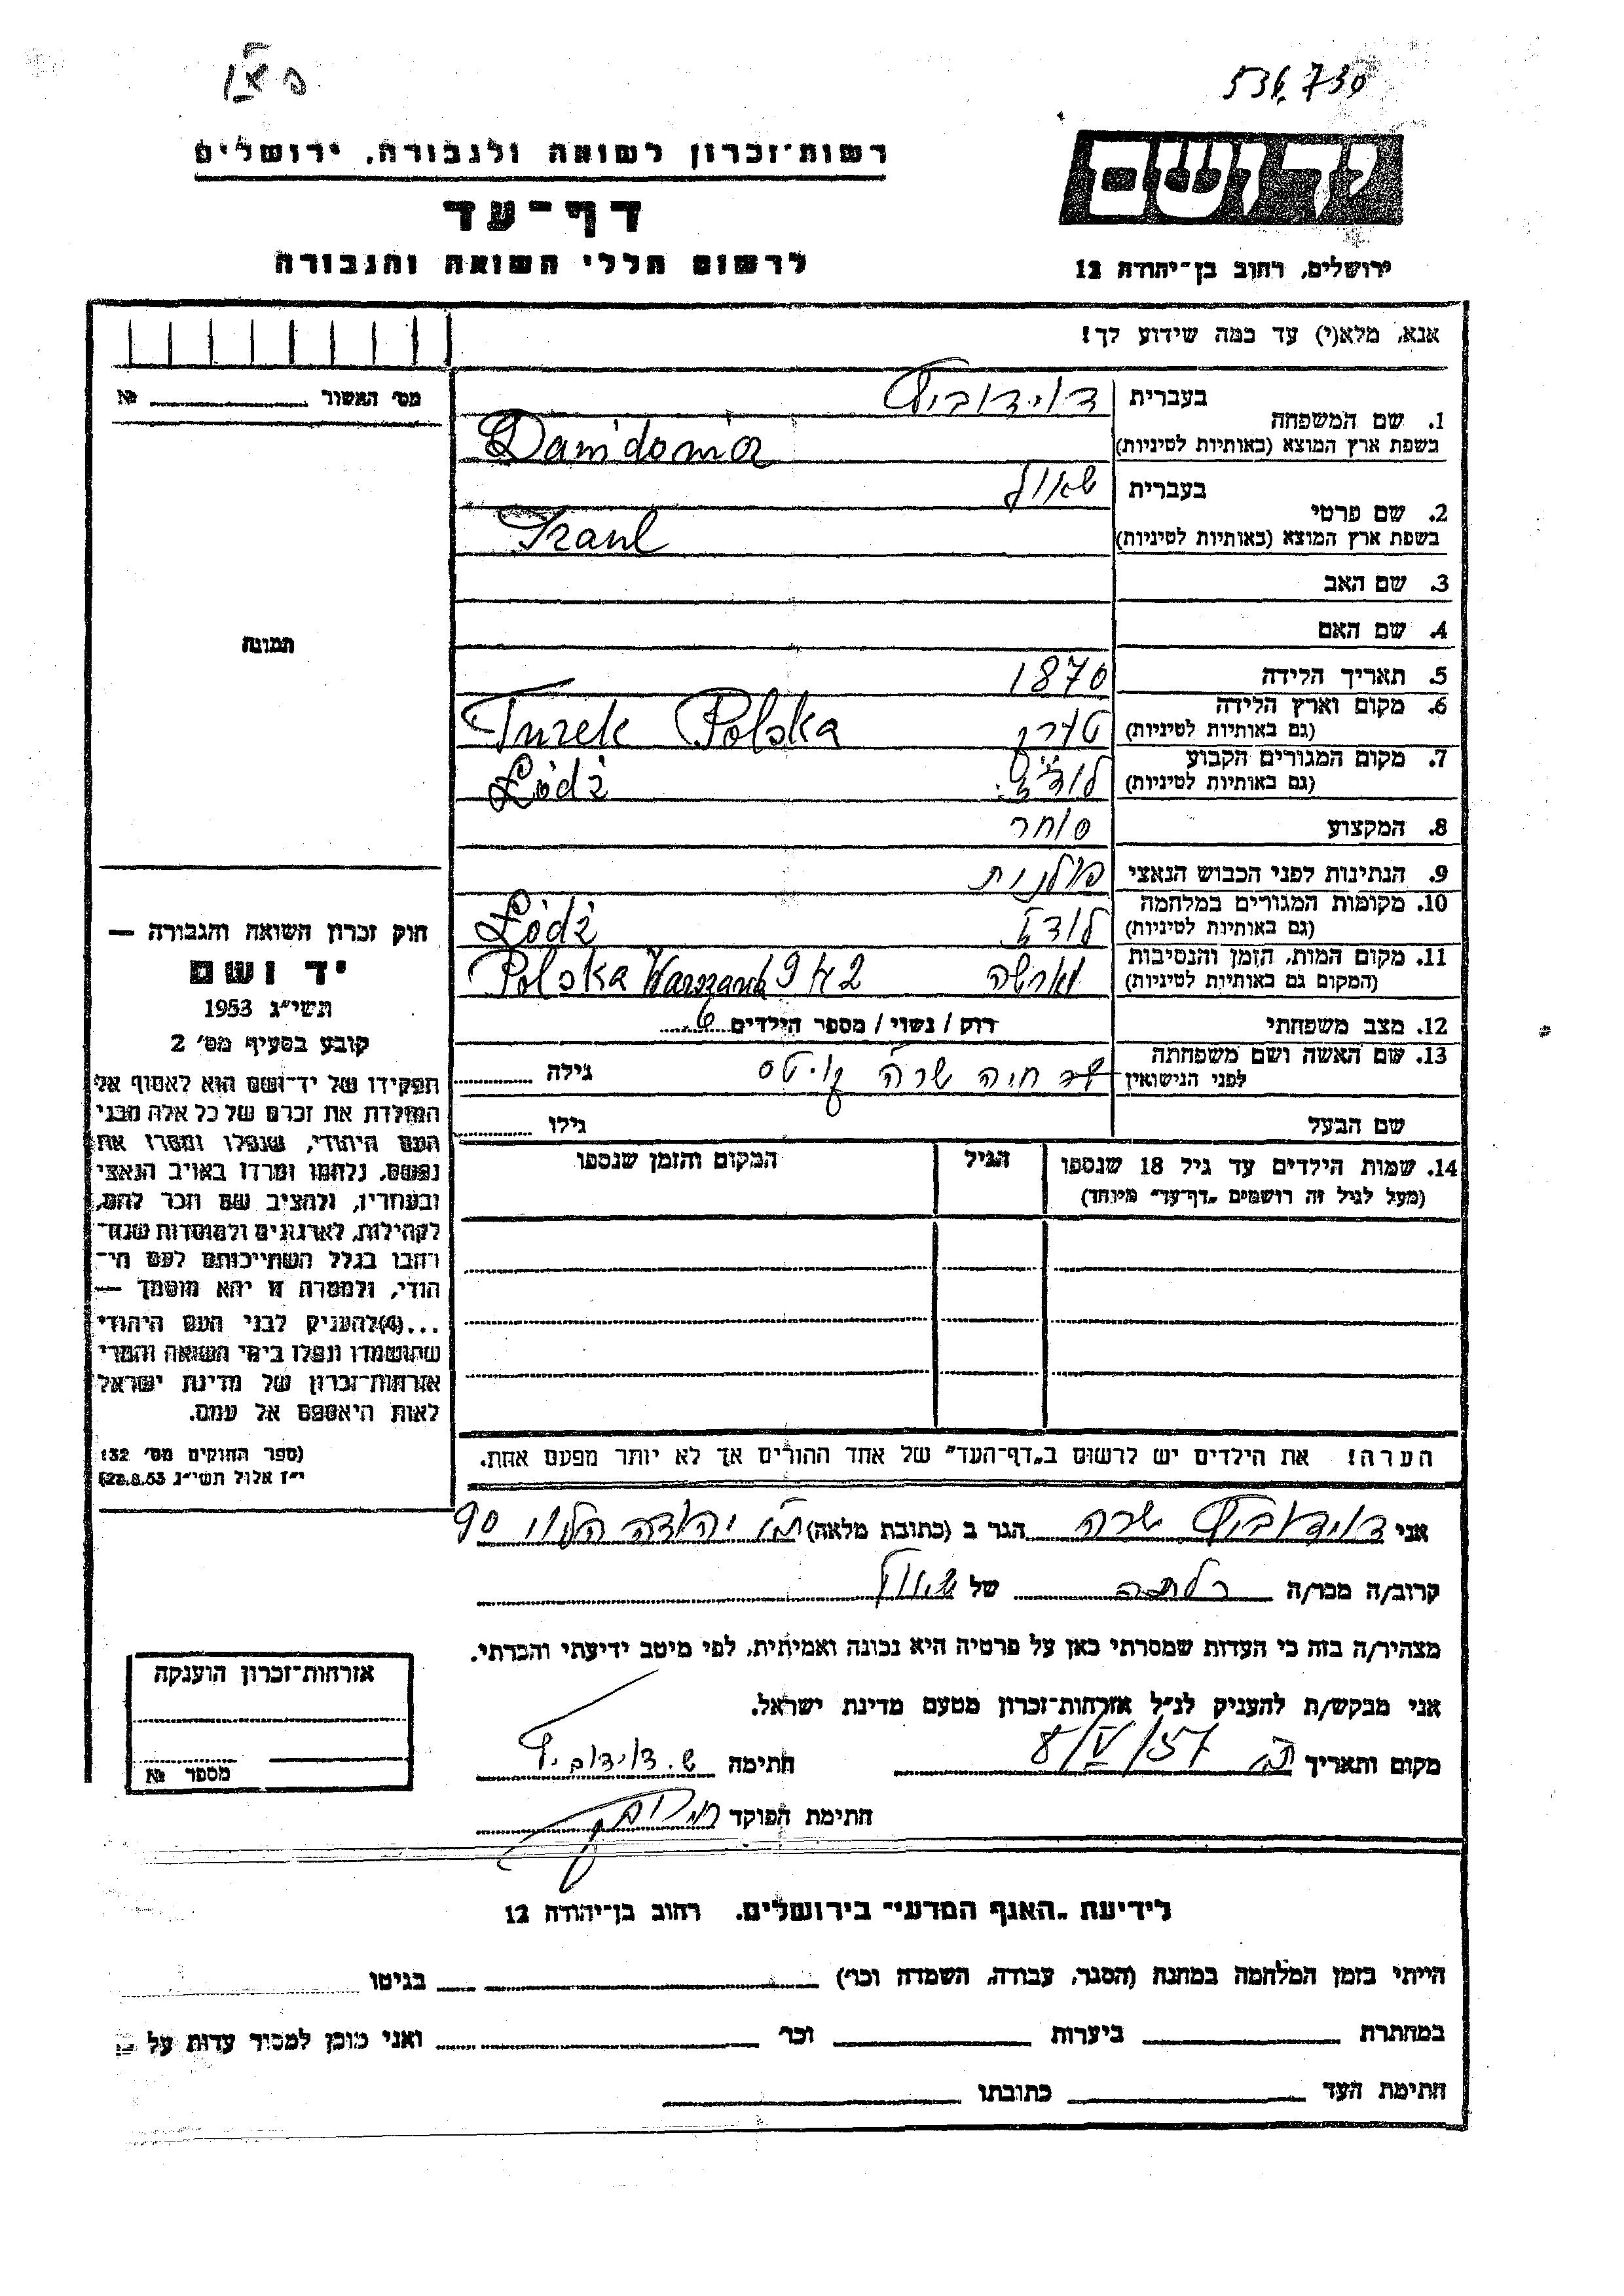 536.730
רשות־זכרון לשואה ולגבורה, ירושלים
יד ושם
דף־עד
לרשום חללי השואה והגבורה
ירושלים, רחוב בן־יהודה 12
אנא, מלא(י) עד כמה שידוע לך!
מס׳ האשור № 
1. שם המשפחה
בעברית דוידוביץ
בשפת ארץ המוצא (באותיות לטיניות)
2. שם פרטי
בעברית שאול
בשפת ארץ המוצא (באותיות לטיניות)
3. שם האב
4. שם האם
תמונה
5. תאריך הלידה 1870
6. מקום וארץ הלידה
(גם באותיות לטיניות) טורק Turek Polska
7. מקום המגורים הקבוע
(גם באותיות לטיניות) לודז׳ Łódź
8. המקצוע סוחר
9. הנתינות לפני הכבוש הנאצי פולנית
10. מקומות המגורים במלחמה
(גם באותיות לטיניות) לודז Łódź
11. מקום המות, הזמן והנסיבות
(המקום גם באותיות לטיניות) וארשה 942 Polska
12. מצב משפחתי רוק / נשוי / מספר הילדים 6
13. שם האשה ושם משפחתה
לפני הנישואין חיה שרה גילה
שם הבעל גילו
14. שמות הילדים עד גיל 18 שנספו הגיל המקום והזמן שנספו
(מעל לגיל זה רושמים „דף־עד״ מיוחד)
הערה! את הילדים יש לרשום ב„דף־העד״ של אחד ההורים אך לא יותר מפעם אחת.
חוק זכרון השואה והגבורה —
יד ושם
תשי״ג 1953
קובע בסעיף מס׳ 2
תפקידו של יד־ושם הוא לאסוף אל
המולדת את זכרם של כל אלה מבני
העם היהודי, שנפלו ומסרו את
נפשם, נלחמו ומרדו באויב הנאצי
ובעוזריו, ולהציב שם וזכר להם,
לקהילות, לארגונים ולמוסדות שנח־
רבו בגלל השתייכותם לעם הי־
הודי, ולמטרה זו יהא מוסמך —
...(4)להעניק לבני העם היהודי
שהושמדו ונפלו בימי השואה והמרי
אזרחות־זכרון של מדינת ישראל
לאות היאספם אל עמם.
(ספר החוקים מס׳ 132
י״ז אלול תשי״ג 28.8.53)
אני דוידוביץ שרה הגר ב (כתובת מלאה) ת״א יהודה הלוי 90
קרוב/ה מכר/ה כלתה של שאול
מצהיר/ה בזה כי העדות שמסרתי כאן על פרטיה היא נכונה ואמיתית, לפי מיטב ידיעתי והכרתי.
אני מבקש/ת להעניק לנ״ל אזרחות־זכרון מטעם מדינת ישראל.
מקום ותאריך ת״א 8/V/57 חתימה ש. דוידוביץ
חתימת הפוקד
אזרחות־זכרון הוענקה
מספר №
לידיעת „האגף המדעי״ בירושלים. רחוב בן־יהודה 12
הייתי בזמן המלחמה במחנה (הסגר, עבודה, השמדה וכו׳) בגיטו
במחתרת ביערות וכו׳ ואני מוכן למסור עדות על
חתימת העד כתובתו